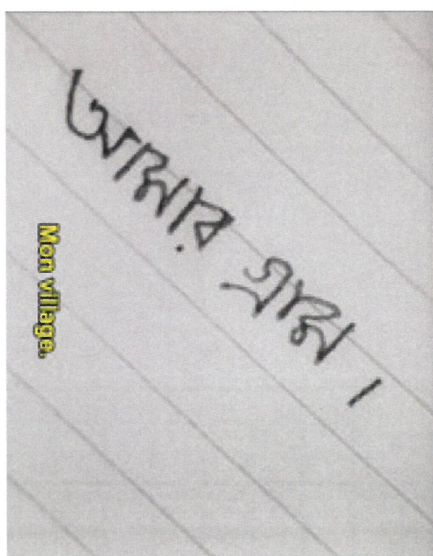 আমার গ্রাম।
Mon village.